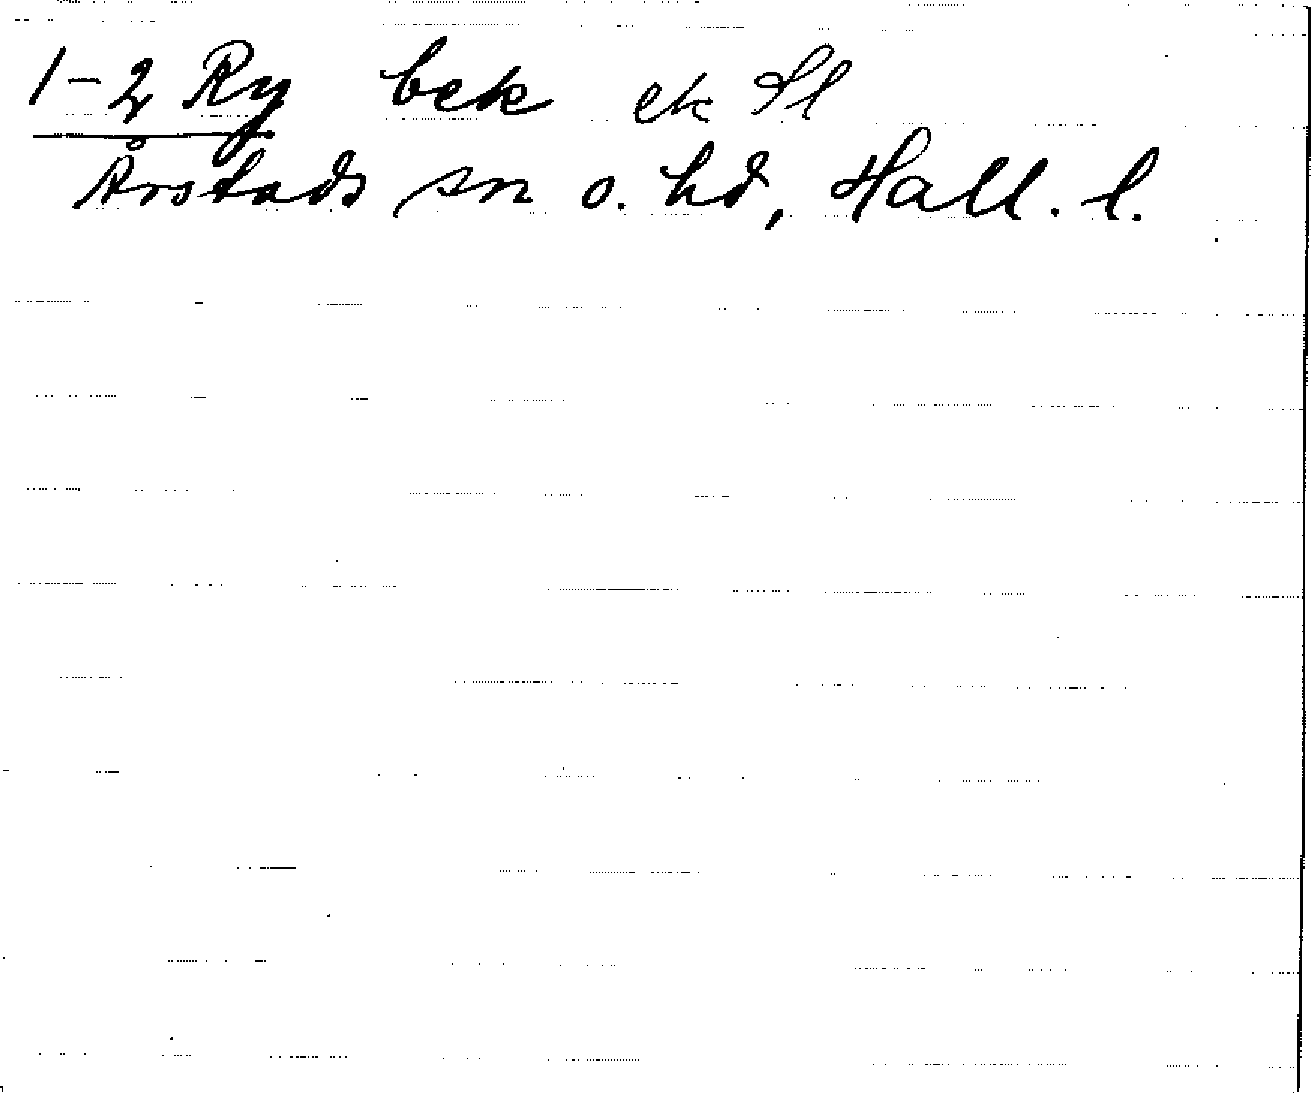 1-2 Ry bek ek Sl
Årstads sn o. hd, Hall. l.